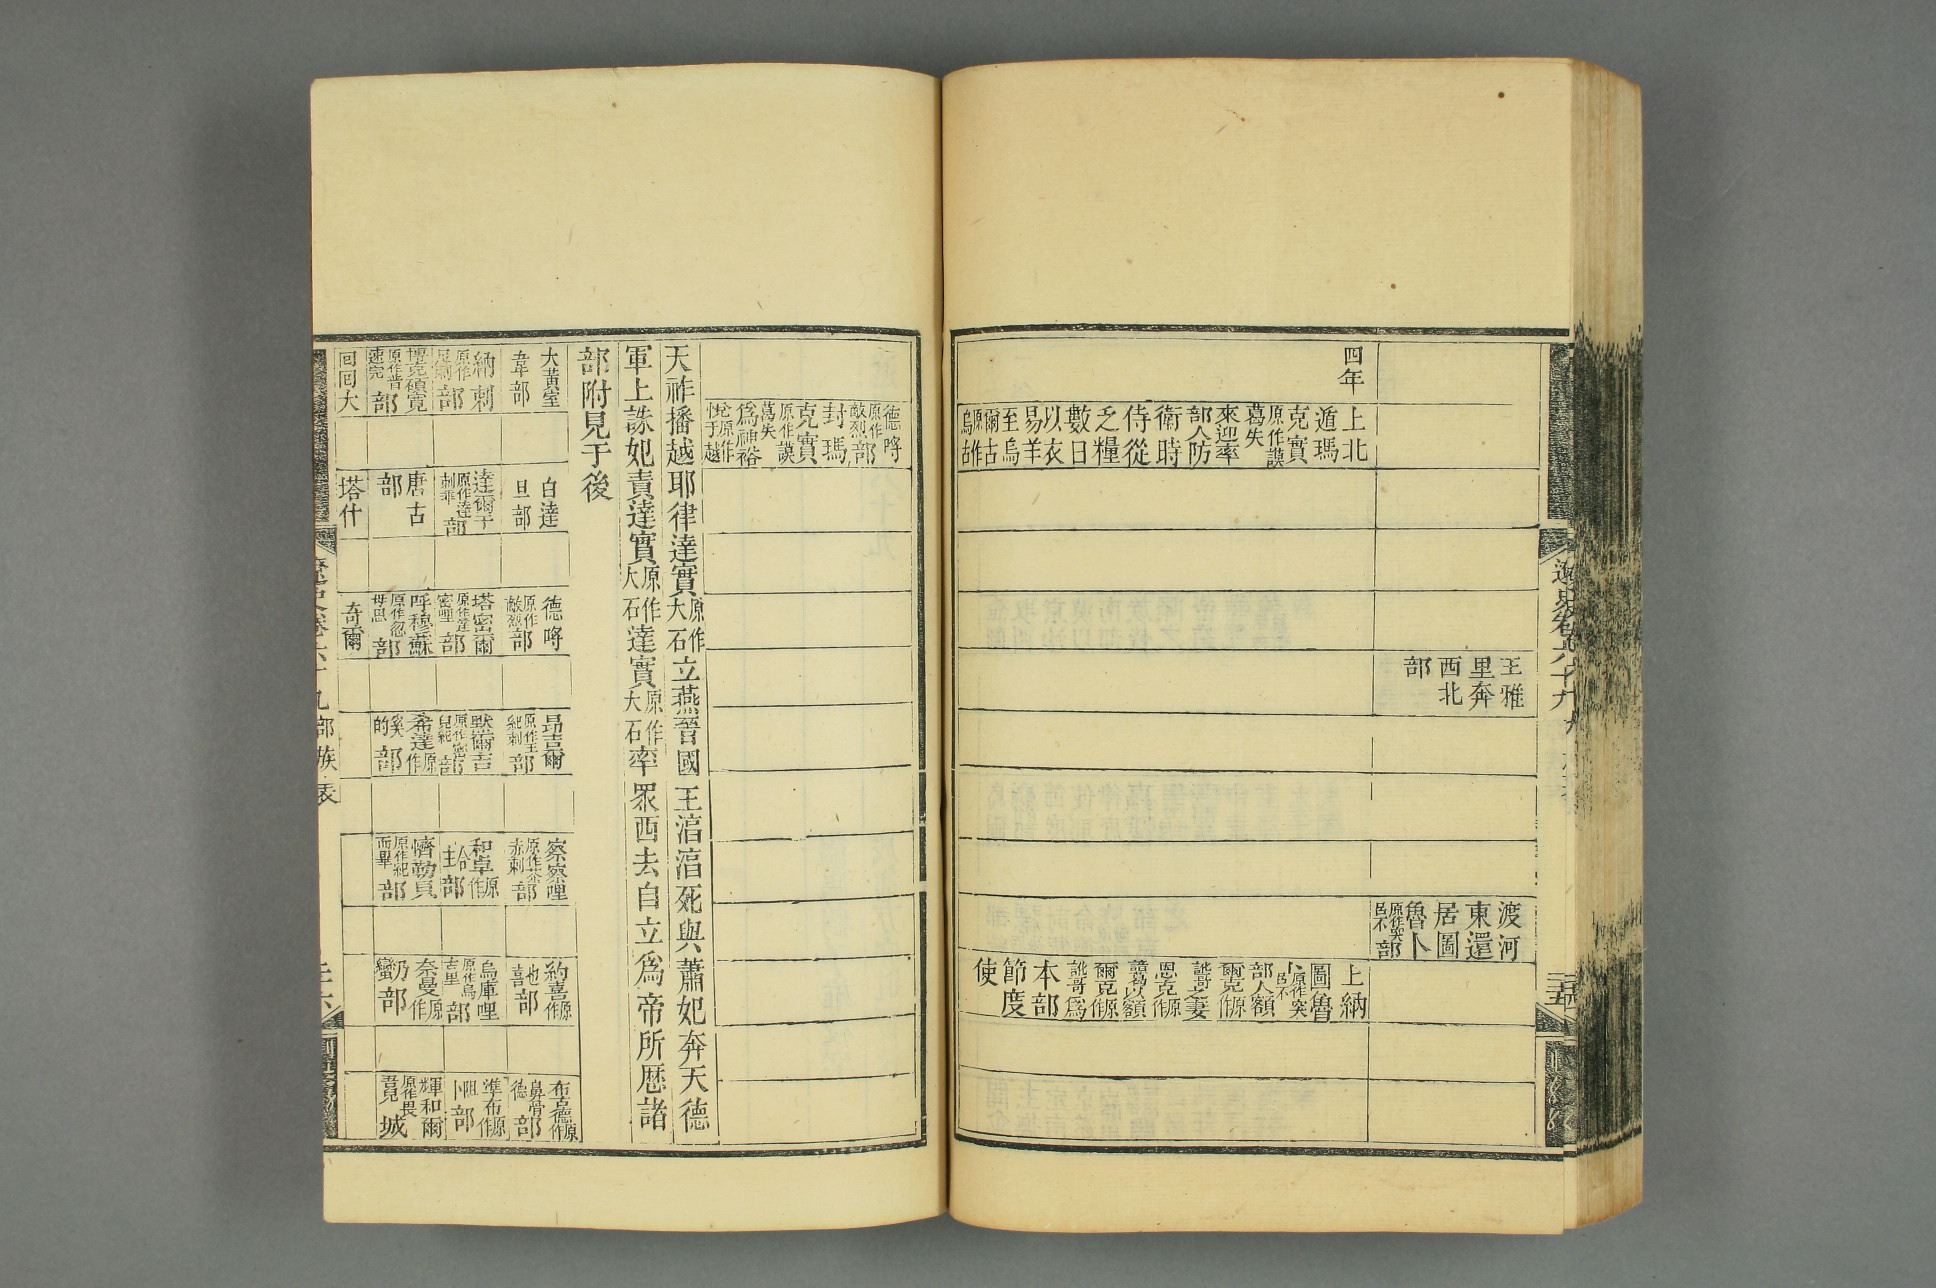 王雅
里奔
西北
部
渡河
東還
居圖
魯卜
原作突
呂不
部
四年
上北
遁瑪
克實
原作謨
葛失
來迎率
部人防
衛時
侍從
乏糧
數日
以衣
易羊
至烏
爾古
原作
烏古
上納
圖魯
卜原作突
呂不
部人額
爾克原
作
訛哥妻
恩克原
作
諳葛以額
爾克原
作
訛哥爲
本部
節度
使
德哷
原作
敵烈
部
封瑪
克實
原作謨
葛失
爲神裕
悅原作
于越
天祚播越耶律達實原作大石立燕晉國王湻湻死與蕭妃奔天德
軍上誅妃責達實原作大石達實原作大石率眾西去自立爲帝所歷諸
部附見于後
大黃室
韋部
白達
旦部
德哷
原作
敵烈
部
昂吉爾
原作王
紀剌
部
察察哩
原作茶
赤剌
部
約喜原
作
也
喜
部
布古德原
作
鼻骨
德
部
納剌
原作
尼剌
部
達爾子
原作達
剌乖
部
塔密爾
原作達
密里
部
默爾吉
原作密
兒紀
部
和卓原
作
合
主
部
烏庫哩
原作烏
古里
部
準布原
作
阻
卜
部
博克碩寬
原作普
速完
部
唐古
部
呼穆蘇
原作忽
母思
部
希達原
作
奚
的
部
濟勒頁
原作紀
而畢
部
奈曼原
作
乃
蠻
部
輝和爾
原作畏
吾兒
城
回回大
塔什
奇爾
遼史卷六十九
遼史卷六十九
部族表
三十六